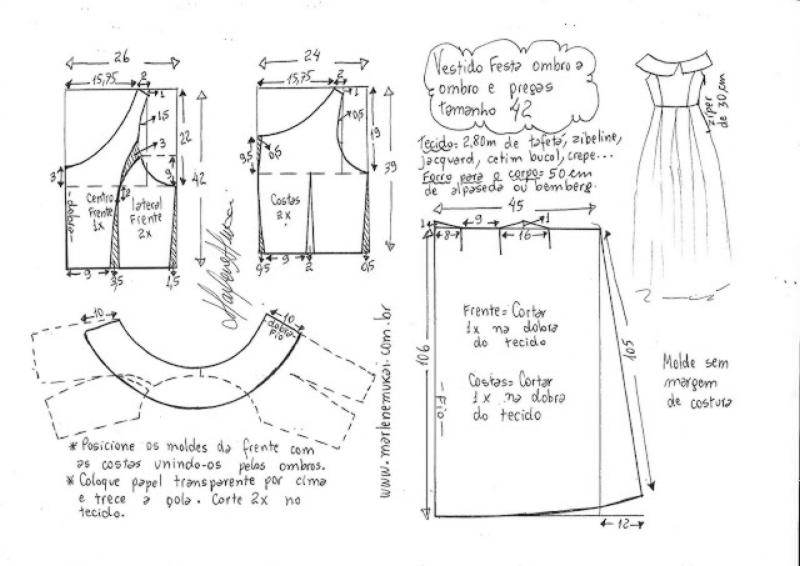 26
15,75
2
1
1,5
3
22
9
42
3
2
-dobra-
Centro
Frente
1x
lateral
Frente
2x
9
3,5
1,5
24
15,75
2
1
0,5
19
9,5
0,5
39
Costas
2x
0,5
9
2
0,5
Vestido Festa ombro a
ombro e pregas
tamanho 42
Tecido= 2,80m de tafetá, zibeline,
jacquard, cetim bucol, crepe...
Forro para o corpo= 50 cm
de alpaseda ou bemberg.
zíper
de 30,cm
45
1
8
9
16
1
106
105
Frente= Cortar
1x na dobra
do tecido
Costas= Cortar
1x na dobra
do tecido
-Fio-
12
Molde sem
margem
de costura
www.marlenemukai.com.br
10
10
dobra-
Fio
* Posicione os moldes da frente com
as costas unindo-os pelos ombros.
* Coloque papel transparente por cima
e trece a gola. Corte 2x no
tecido.